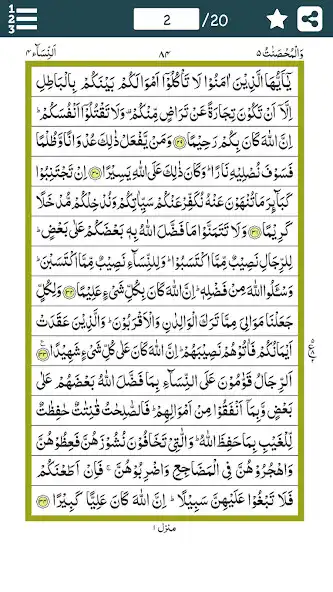 1 2 3
2 /20
اَلنِّسَآء ٤ ٨٤ وَالْمُحْصَنٰتُ ٥
يٰۤاَيُّهَا الَّذِيْنَ اٰمَنُوْا لَا تَاْكُلُوْۤا اَمْوَالَكُمْ بَيْنَكُمْ بِالْبَاطِلِ
اِلَّاۤ اَنْ تَكُوْنَ تِجَارَةً عَنْ تَرَاضٍ مِّنْكُمْ ۟ وَلَا تَقْتُلُوْۤا اَنْفُسَكُمْ ؕ
اِنَّ اللّٰهَ كَانَ بِكُمْ رَحِيْمًا ﴿٢٩﴾ وَمَنْ يَّفْعَلْ ذٰلِكَ عُدْوَانًا وَّظُلْمًا
فَسَوْفَ نُصْلِيْهِ نَارًا ؕ وَكَانَ ذٰلِكَ عَلَى اللّٰهِ يَسِيْرًا ﴿٣٠﴾ اِنْ تَجْتَنِبُوْا
كَبَآئِرَ مَا تُنْهَوْنَ عَنْهُ نُكَفِّرْ عَنْكُمْ سَيِّاٰتِكُمْ وَنُدْخِلْكُمْ مُّدْخَلًا
كَرِيْمًا ﴿٣١﴾ وَلَا تَتَمَنَّوْا مَا فَضَّلَ اللّٰهُ بِهٖ بَعْضَكُمْ عَلٰى بَعْضٍ ؕ
لِلرِّجَالِ نَصِيْبٌ مِّمَّا اكْتَسَبُوْا ؕ وَلِلنِّسَآءِ نَصِيْبٌ مِّمَّا اكْتَسَبْنَ ؕ
وَسْـَٔلُوا اللّٰهَ مِنْ فَضْلِهٖ ؕ اِنَّ اللّٰهَ كَانَ بِكُلِّ شَيْءٍ عَلِيْمًا ﴿٣٢﴾ وَلِكُلٍّ
جَعَلْنَا مَوَالِيَ مِمَّا تَرَكَ الْوَالِدٰنِ وَالْاَقْرَبُوْنَ ؕ وَالَّذِيْنَ عَقَدَتْ
اَيْمَانُكُمْ فَاٰتُوْهُمْ نَصِيْبَهُمْ ؕ اِنَّ اللّٰهَ كَانَ عَلٰى كُلِّ شَيْءٍ شَهِيْدًا ﴿٣٣﴾
اَلرِّجَالُ قَوّٰمُوْنَ عَلَى النِّسَآءِ بِمَا فَضَّلَ اللّٰهُ بَعْضَهُمْ عَلٰى
بَعْضٍ وَّبِمَاۤ اَنْفَقُوْا مِنْ اَمْوَالِهِمْ ؕ فَالصّٰلِحٰتُ قٰنِتٰتٌ حٰفِظٰتٌ
لِّلْغَيْبِ بِمَا حَفِظَ اللّٰهُ ؕ وَالّٰتِيْ تَخَافُوْنَ نُشُوْزَهُنَّ فَعِظُوْهُنَّ
وَاهْجُرُوْهُنَّ فِي الْمَضَاجِعِ وَاضْرِبُوْهُنَّ ۚ فَاِنْ اَطَعْنَكُمْ
فَلَا تَبْغُوْا عَلَيْهِنَّ سَبِيْلًا ؕ اِنَّ اللّٰهَ كَانَ عَلِيًّا كَبِيْرًا ﴿٣٤﴾
منزل ١